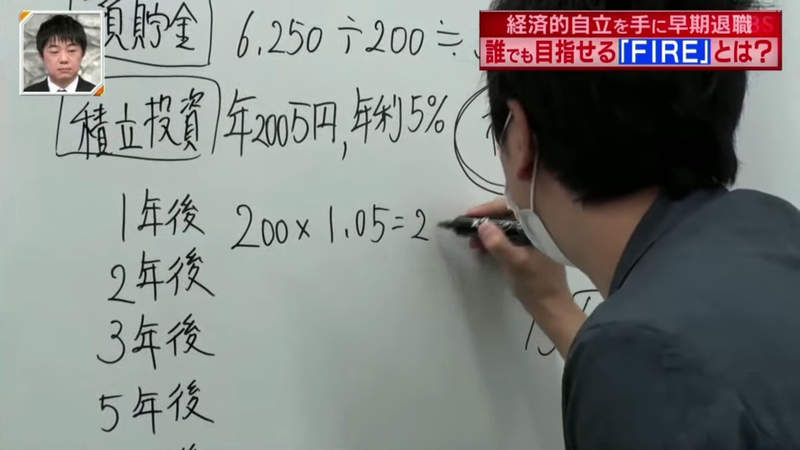 経済的自立を手に早期退職
誰でも目指せる「FIRE」とは?
貯金 6.250÷200÷
積立投資 年200万円,年利5%
1年後 200×1.05=2
2年後
3年後
5年後